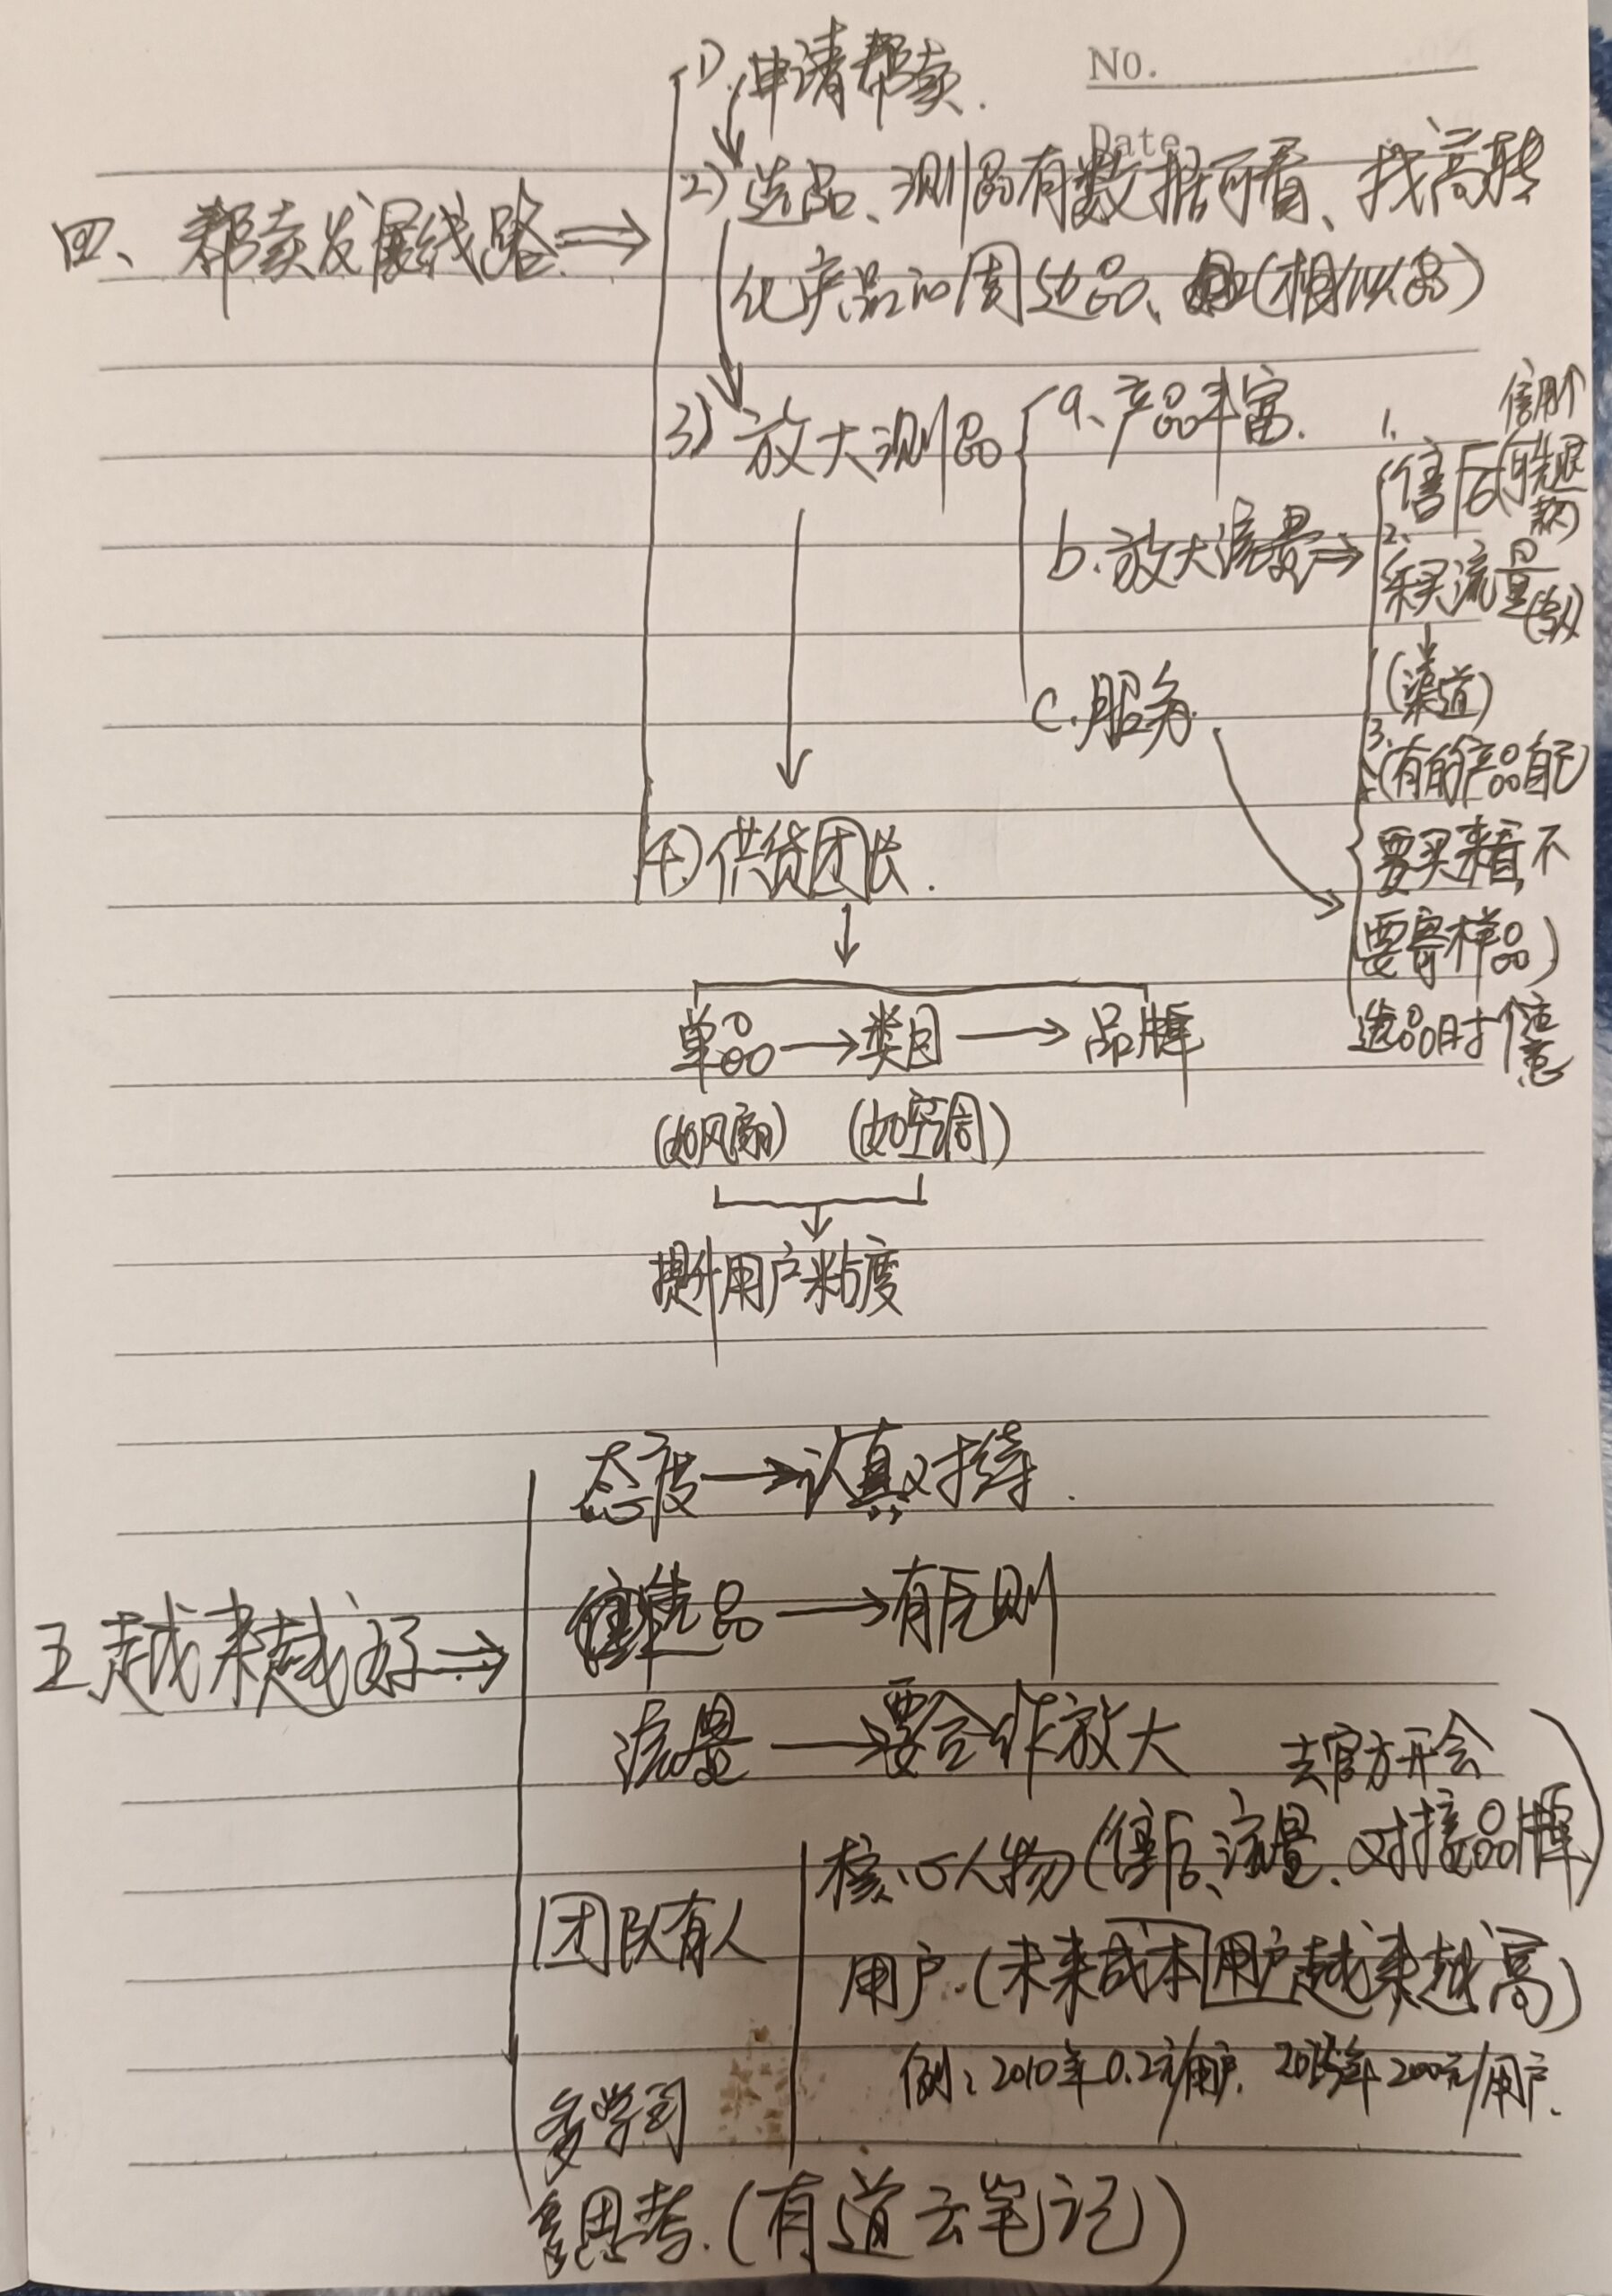 No.
Date
四、帮卖发展线路
1) 申请帮卖.
2) 选品、测品有数据可看、找高转
化产品的周边品、(相似品)
3) 放大测品
a、产品丰富.
b.放大流量
c.服务.
1.
信用
售后
2.
采买流量
(渠道)
3.
(有的产品自己
要买来看,不
要寄样品)
选品时注意
4) 供货团长.
单品 → 类目 → 品牌
(如风扇) (如空调)
提升用户粘度
五.越来越好
态度 → 认真对待.
选品 → 有原则
流量 → 要合作放大
去官方开会
团队有人
核心人物(售后、流量、对接品牌)
用户.(未来成本用户越来越高)
例:2010年0.2元/用户. 2025年200元/用户.
多学习
多思考.(有道云笔记)